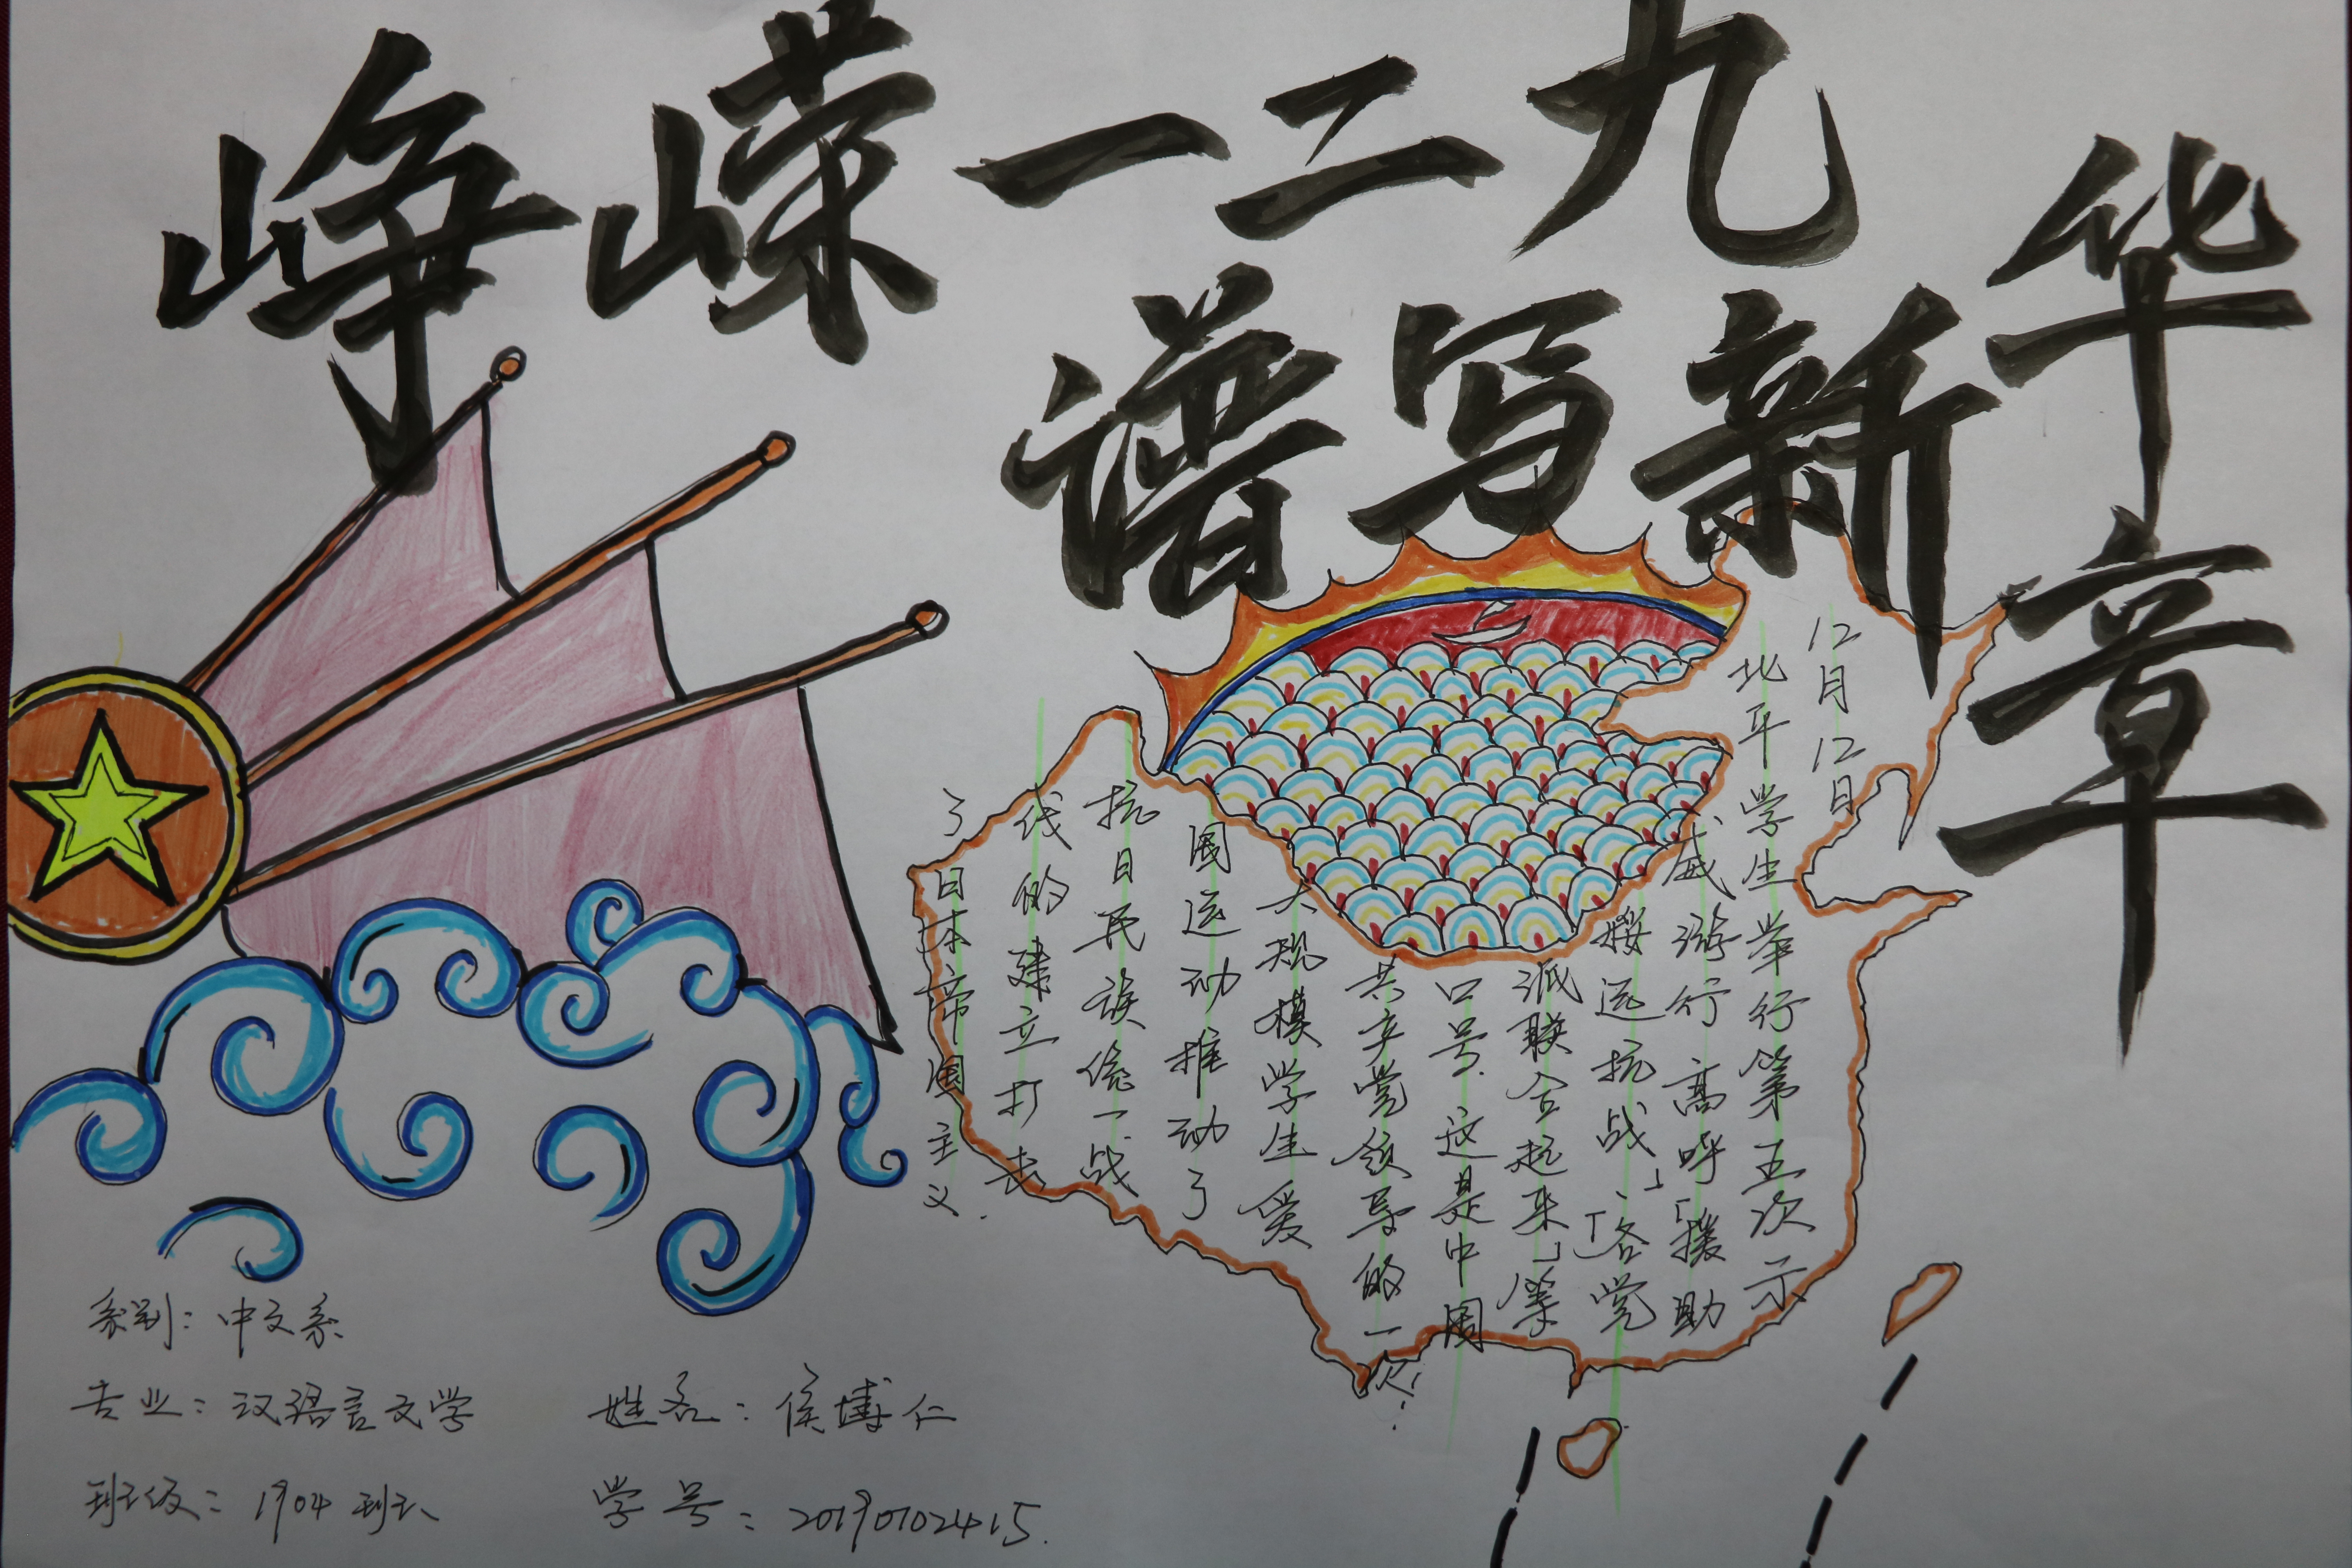 峥嵘一二九
谱写新华章
12月12日
北平学生举行第五次示
威游行高呼「援助
绥远抗战」、「各党
派联合起来」等
口号.这是中国
共产党领导的一次
大规模学生爱
国运动推动了
抗日民族统一战
线的建立打击
了日本帝国主义.
系别:中文系
专业:汉语言文学
姓名:侯博仁
班级:1904班
学号:20190102415.